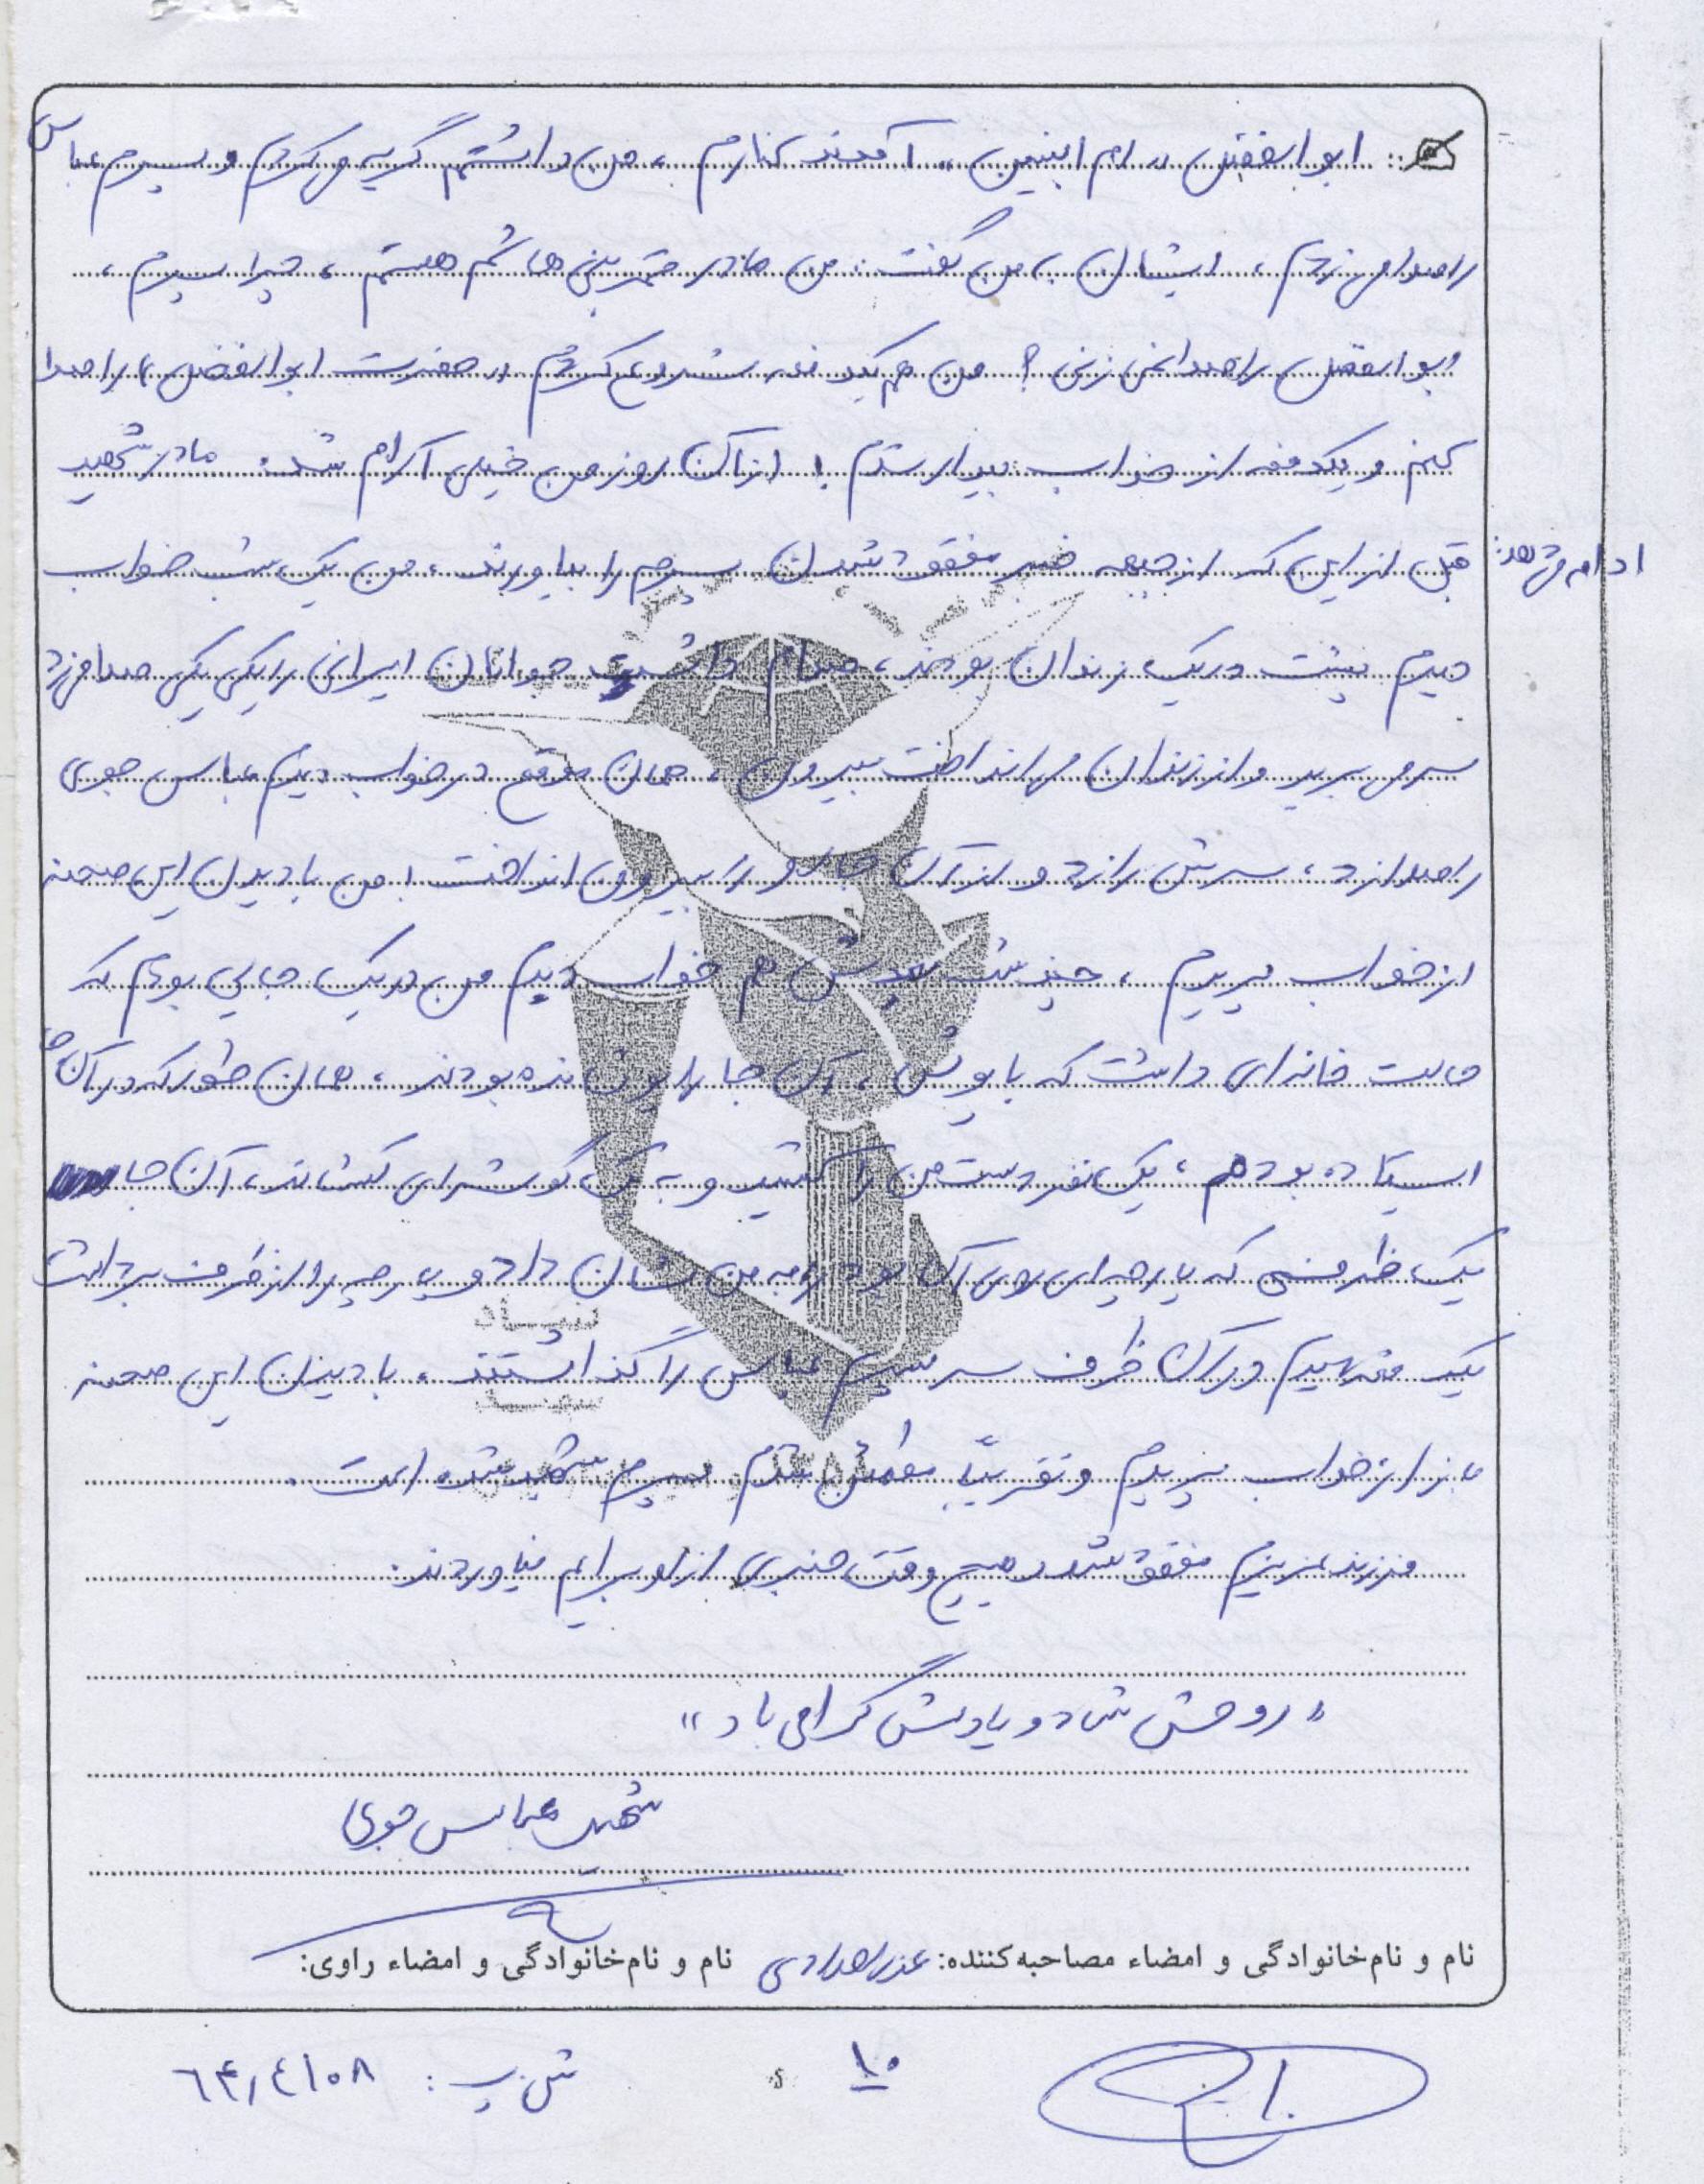 ابوالفضل «ام البنین» آمدند کنارم، من داشتم گریه می‌کردم و پسرم عباس
را صدا می‌زدم، ایشان به من گفت: من مادر قمر بنی هاشم هستم، چرا پسرم،
ابوالفضل را صدا نمی‌زنی؟ من هم یکدفعه شروع کردم «حضرت ابوالفضل» را صدا
کنم و یکدفعه از خواب بیدار شدم! از آن روز من خیلی آرام شدم. مادر شهید
ادامه می‌دهد:
قبل از این که از جبهه خبر مفقود شدن پسرم را بیاورند، من یک شب خواب
دیدم پشت در یک زندان بودند، صدام داشت جوانان ایرانی را یکی یکی صدا می‌زد
سر می‌برید و از زندان می‌انداخت بیرون، همان موقع در خواب دیدم عباس جوری
را صدا زد، سرش را زد و از آن جا او را بیرون انداخت! من با دیدن این صحنه
از خواب پریدم، چند شب بعدش هم خواب دیدم من در یک جایی بودم که
حالت خانه‌ای داشت که با پوش، آن جا را پوش زده بودند، همان طور که در آن جا
ایستاده بودم، یک نفر دست من را کشید و به یک گوشه‌ای کشاند، آن جا
یک ظرفی که پارچه‌ای روی آن بود را به من نشان داد و پارچه را از ظرف برداشت
یک دفعه دیدم در آن ظرف سر پسرم عباس را گذاشتند، با دیدن این صحنه
باز از خواب پریدم و تقریباً مطمئن شدم پسرم شهید شده است.
فرزند عزیزم مفقود شد و هیچ وقت خبری از او برایم نیاوردند.
«روحش شاد و یادش گرامی باد»
شهید عباس جوری
نام و نام‌خانوادگی و امضاء مصاحبه‌کننده: عذرا نام و نام‌خانوادگی و امضاء راوی:
۱۰
ش پ: ٦٤/٤١٠٨